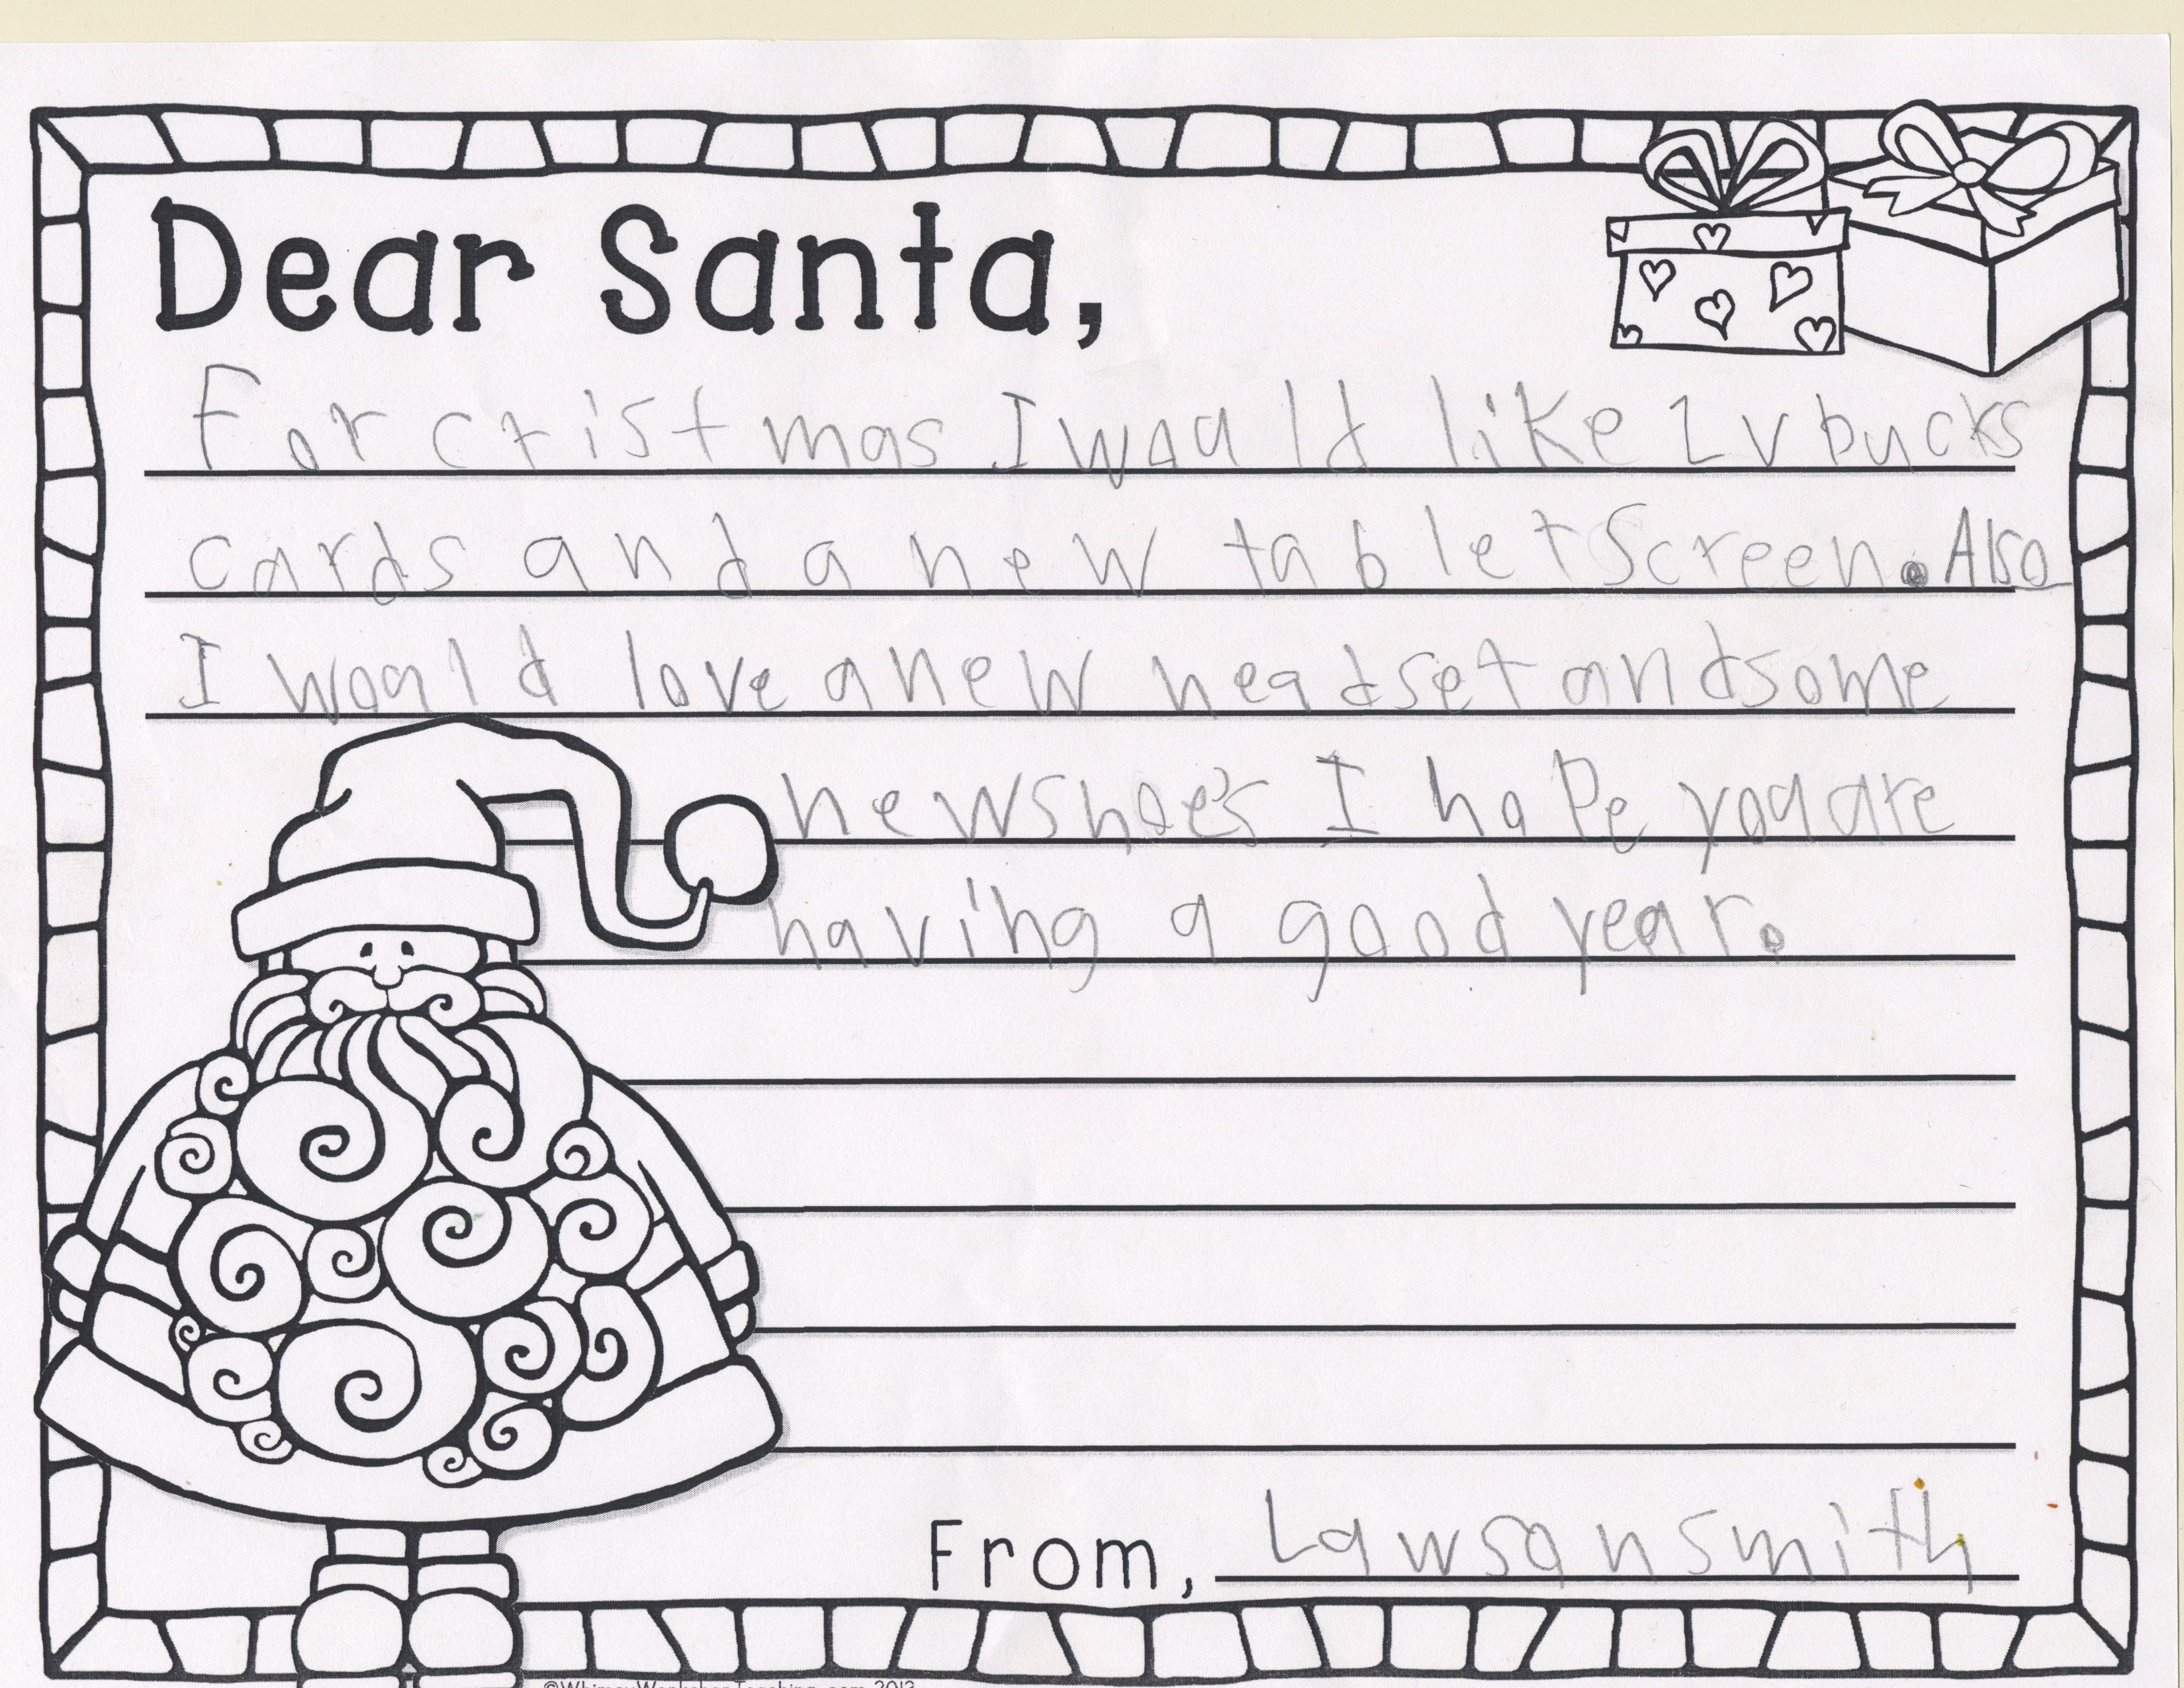 Dear Santa,
For cristmas I would like 2 v bucks
cards and a new tablet screen. Also
I would love a new headset and some
new shoes I hope you are
having a good year.
From, Lawson smith
©WhimsyWorkshopTeaching.com 2013